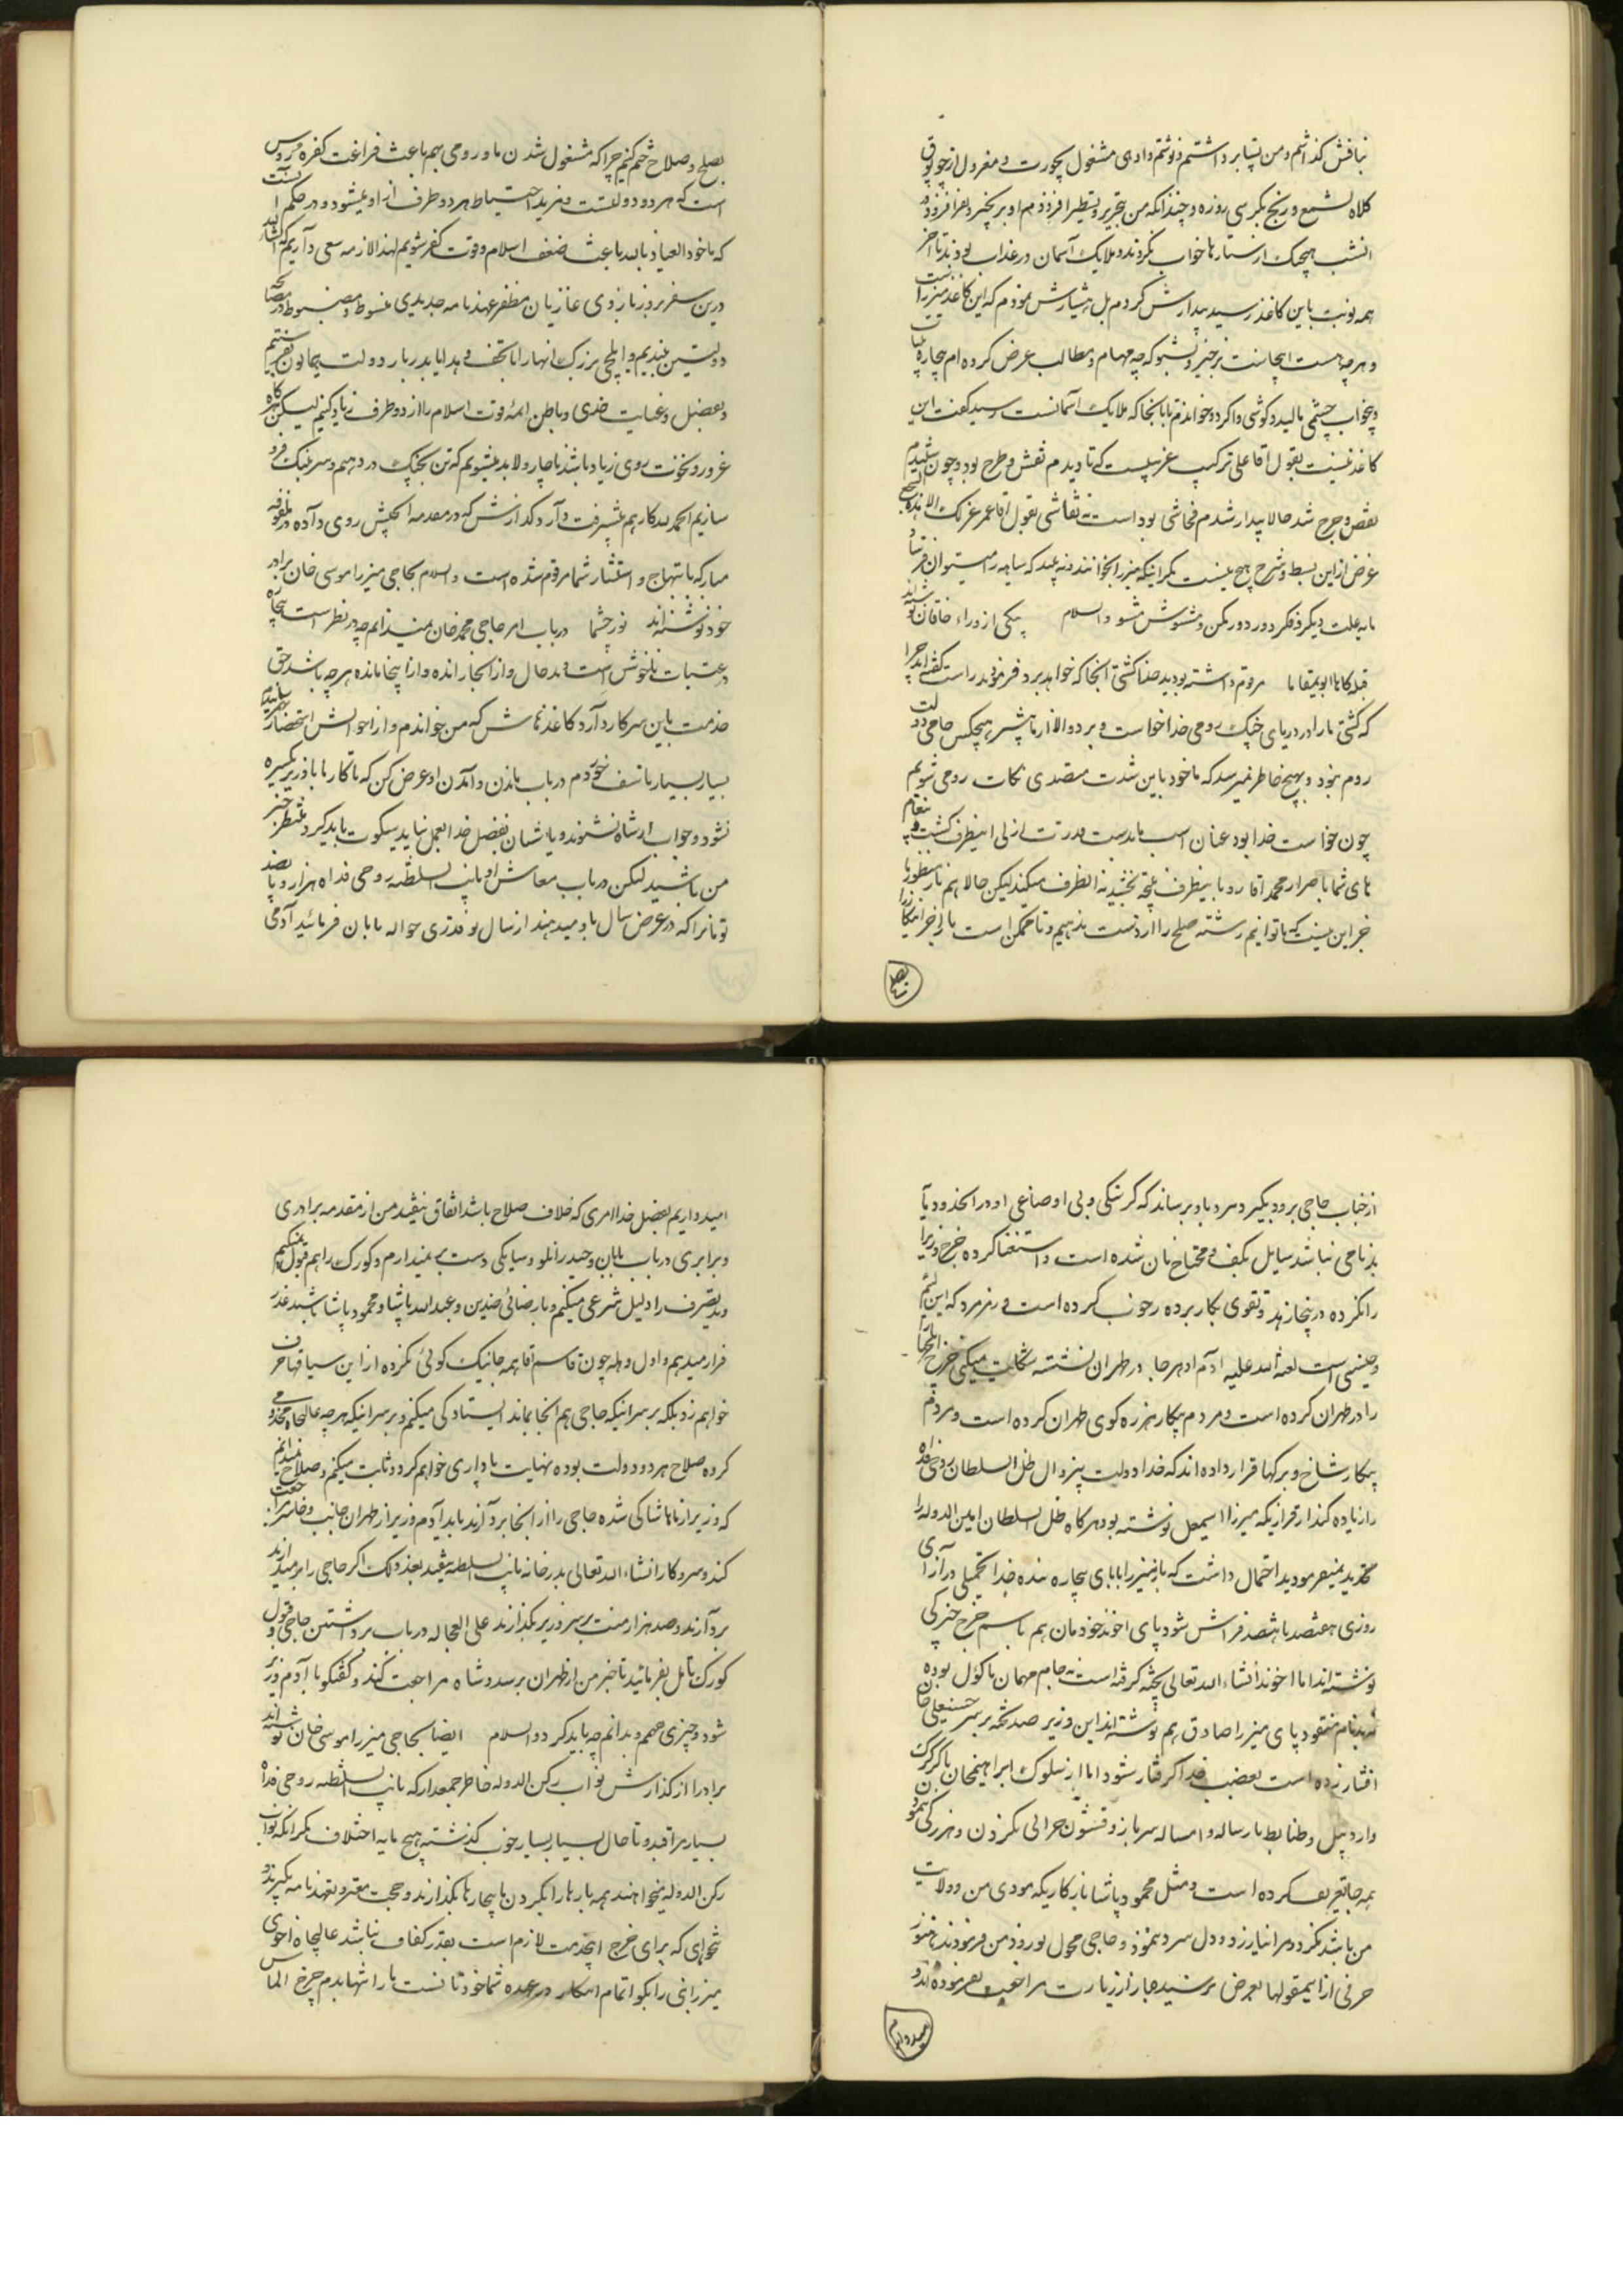 نباقش گذاشتم و من پتیا برداشتم و نوشتم و او هی مشغول بچورت و مغرول از چوبوق
کلاه شمع و رنج بکرسی روزه و چندانکه من بتحریر و تسطیر افزودم او بر بخیر و نفر افزود در
انشب هیچیک از ستارها خواب نکردند و ملایک آسمان در عذاب بودند تا آخر
همه نوبت باین کاغذ رسید بیدارش کردم بل هشیارش نمودم که این کاغذ میرزا
و هرچه هست اینجاست برخیز و بشنو که چه مهام و مطالب عرض کرده ام بیچاره
و بخواب چشمی مالید و گوشی واکرد و خواندم تا بآنجا که ملایک آسمانست رسید گفت این
کاغذ نیست بقول آقا علی ترکیب غریبیست که تا دیدم نقش و طرح بود و چون شنیدم
نقص و جرح شد حالا بیدار شدم فحاشی بود است نه نقاشی بقول آقا عمر غزلک الا
غرض از این بسط و شرح هیچ نیست مگر اینکه میرزا بخوانند و نه پند که سیاهه را میتوان
مایه علت دیگر فکر دور دور مکن و مشوش مشو والسلام پیکی از وزراء خاقان
قبله گاها ابویمقاما مرقوم داشته بودید خدا کشتی آنجا که خواهد برد فرمودید راست گفته اند چرا
که کشتی ما را در دریای جنگ رومی خدا خواست و برد و الا از ما پیشتر هیچکس حامی دولت
روم نبود و بهیچ خاطر نمیرسد که ما خود باین شدت متصدی نکات رومی شویم
چون خواست خدا بود عنان اسب ما بدست قدرت ازلی اینطرف گشت
های شما باصرار محمد آقا رو باینطرف نتیجه بخشید نه انطرف میکند لیکن حالا هم باز منظور ما
جز این نیست که تا توانیم رشته صلح را از دست ندهیم و تا ممکن است
بصلح
بصلح و صلاح ختم کنیم چرا که مشغول شدن ما و رومی بهم باعث فراغت کفره روس
است که هر دو دولتست و مزید احتیاط هر دو طرف از او میشود و در حکم آنست
که ما خود العیاذ بالله باعث ضعف اسلام و قوت کفر شویم لهذا لازمه سعی داریم که انشاء الله
درین سفر بروز بازوی غازیان مظفر عهدنامه جدیدی مبسوط و مضبوط در مصالحه
دولتین ببندیم و ایلچی بزرگ انها را با تحف و هدایا بدربار دولت همایون بفرستیم
و بفضل و عنایت خدای و باطن ائمه قوت اسلام را از دو طرف زیاد کنیم لیکن هرگاه
غرور و نخوت رومی زیاد باشد ناچار و لابد میشویم که تن بجنگ در دهیم و سر بننگ فرو
سازیم الحمد لله کار هم پیشرفت دارد گذارش که در مقدمه الجیش روی داده در ملفوفه
مبارکه بابتهاج و استبشار شما مرقوم شده است والسلام بحاجی میرزا موسی خان برادر
خود نوشته اند نور چشما در باب امر حاجی محمد خان نمیدانم چه در نظر است بیچاره
در عتبات ناخوش است و بد حال و از آنجا رانده و از اینجا مانده هر چه باشد حق
خدمت باین سرکار دارد کاغذهاش که من خواندم و از احوالش استحضار
بسیار بسیار متأسف خوردم در باب ماندن و آمدن او عرض کن که تا کار ما با وزیر یکسره
نشود و جواب از شاه نشنوند و باشبان بفضل خدا بعمل نیاید سکوت باید کرد و منتظر خبر
من باشید لیکن در باب معاش او نایب السلطنه روحی فداه هزار و پانصد
تومانرا که در عرض سال باو میدهند از سال نو قدری حواله بابان فرمائید آدمی
از جناب حاجی برود بگیرد و ببرد باو برساند که گرسنگی و بی اوضاعی او در آنحدود یا
بدنامی نباشد سایل بکف و محتاج نان شده است و استغنا کرده خرج وزیر
را نکرده در پنجاز هد و تقوی بکار برده خوب کرده است وزیر مرد که این
و جنسی است لعنة الله علیه آدم او هرجا در طهران نشسته شکایت میکنی خرج ایلچیها
را در طهران کرده است و مردم بیکار هرزه گوی طهران کرده است و مردم
بیکار شاخ و برگها قرار داده اند که خدا دولت بیزوال ظل السلطان روحی فداه
را زیاده کند از قراریکه میرزا اسمعیل نوشته بود هرگاه ظل السلطان امین الدوله را
تهدید نمیفرمودید احتمال داشت که باز میرزا بابای بیچاره بنده خدا تحمیلی در ازای
روزی هفتصد یا هشتصد فراش شود پای اخوند خودمان هم باسم خرج خبرکی
نوشته اند اما اخوند انشاء الله تعالی پخته گرفته است نه خام مهمان ماکول بوده
نه بدنام منقود پای میرزا صادق هم نوشته اند این وزیر صد نخمه بر سر حسینعلی خان
افشار زده است بغضب خدا گرفتار شود اما از سلوک ابراهیمخان باکرکرک
و اردبیل و ضابط ما رساله و امساله سرباز و قشون جرالی نکردن و هرزگی ننمود
همه جا تعریف کرده است و مثل محمود پاشا باز کاریکه موذی من و ولایت
من باشد نکرد و مرا بیازرد و دل سرد ننمود و حاجی محول نوروز من فرمودند هنوز
حرفی از اینمقولها بعرض نرسید هجاز از زیارت مراجعت نفرموده اند و
امیدواریم
امیدواریم بفضل خدا امری که خلاف صلاح باشد اتفاق نیفتد من از مقدمه برادری
و برابری در باب بابان و حیدرانلو و سیپکی دست بر نمیدارم و کورک را هم قبول نمیکنم
و ید تصرف را دلیل شرعی میکنم و بارضائی ضدین و عبدالله پاشا و محمود پاشا باشد عذر
قرار میدهم و اول وهله چون قاسم آقا همه جا نیک گوئی نکرده از این سیاقها حرف
خواهم زد بلکه بر سر اینکه حاجی هم آنجا بماند ایستادگی میکنم و بر سر اینکه هرچه عالیجاه مخدومی
کرده صلاح هر دو دولت بوده نهایت پاداری خواهم کرد و ثابت میکنم و صلاح نمیدانم
که وزیر از ماها شاکی شده حاجی را از آنجا برآرند باید آدم وزیر از طهران خائب و خاسر مراجعت
کند و سر و کار انشاء الله تعالی بدرخانه نایب السلطنه بیفتد بعد ذلک اگر حاجی را برمیدارند
بردارند و صد هزار منت بر سر وزیر بگذارند علی العجاله در باب برداشتن حاجی و قبول
کورک تامل بفرمائید تا خبر من از طهران برسد و شاه مراجعت کند و گفتگو با آدم وزیر
شود و چیزی بفهمم و بدانم چه باید کرد والسلام ایضا بحاجی میرزا موسی خان نوشته اند
برادرا از گذارش نواب رکن الدوله خاطر جمعدار که نایب السلطنه روحی فداه
بسیار مراقبند و تا حال بسیار بسیار خوب گذشته هیچ مایه اختلاف مگر آنکه نواب
رکن الدوله میخواهند همه بارها را بگردن ما بیچارها بگذارند و حجت معتبر و تعهدنامه بگیرند و
تنخواهی که برای خرج اینخدمت لازم است بقدر کفاف نباشد عالیجاه اخوی
میرزانبی را بگو اتمام اینکار در عهده شما خود تا نست ما را تنها بدم چرخ الماس